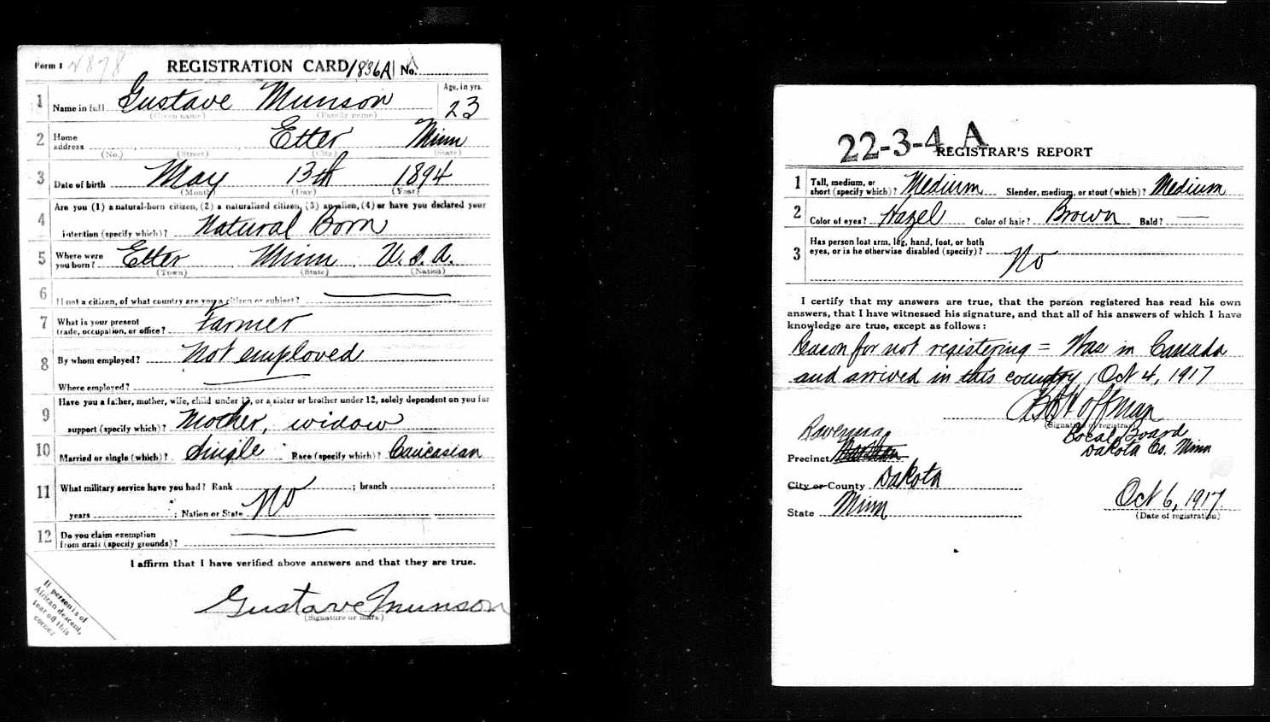 Form 1 2878 REGISTRATION CARD 1836A No.
1 Name in full Gustave Munson Age, in yrs. 23
(Given name) (Family name)
2 Home address Etter Minn
(No.) (Street) (City) (State)
3 Date of birth May 13th 1894
(Month) (Day) (Year)
4 Are you (1) a natural-born citizen, (2) a naturalized citizen, (3) an alien, (4) or have you declared your
intention (specify which)? Natural Born
5 Where were you born? Etter Minn U.S.A.
(Town) (State) (Nation)
6 If not a citizen, of what country are you a citizen or subject? —
7 What is your present trade, occupation, or office? Farmer
8 By whom employed? Not employed
Where employed? —
9 Have you a father, mother, wife, child under 12, or a sister or brother under 12, solely dependent on you for
support (specify which)? Mother, widow
10 Married or single (which)? Single Race (specify which)? Caucasian
11 What military service have you had? Rank ; branch ;
years ; Nation or State No
12 Do you claim exemption from draft (specify grounds)? —
I affirm that I have verified above answers and that they are true.
Gustave Munson
(Signature or mark)
If person is of
African descent,
tear off this
corner
22-3-4 A
REGISTRAR'S REPORT
1 Tall, medium, or short (specify which)? Medium Slender, medium, or stout (which)? Medium
2 Color of eyes? Hazel Color of hair? Brown Bald? —
3 Has person lost arm, leg, hand, foot, or both
eyes, or is he otherwise disabled (specify)? No
I certify that my answers are true, that the person registered has read his own
answers, that I have witnessed his signature, and that all of his answers of which I have
knowledge are true, except as follows:
Reason for not registering = Was in Canada
and arrived in this country, Oct 4, 1917
Hoffman
(Signature of registrar)
Ravenna
Precinct
Local Board
Dakota Co. Minn
City or County Dakota
State Minn
Oct 6, 1917
(Date of registration)